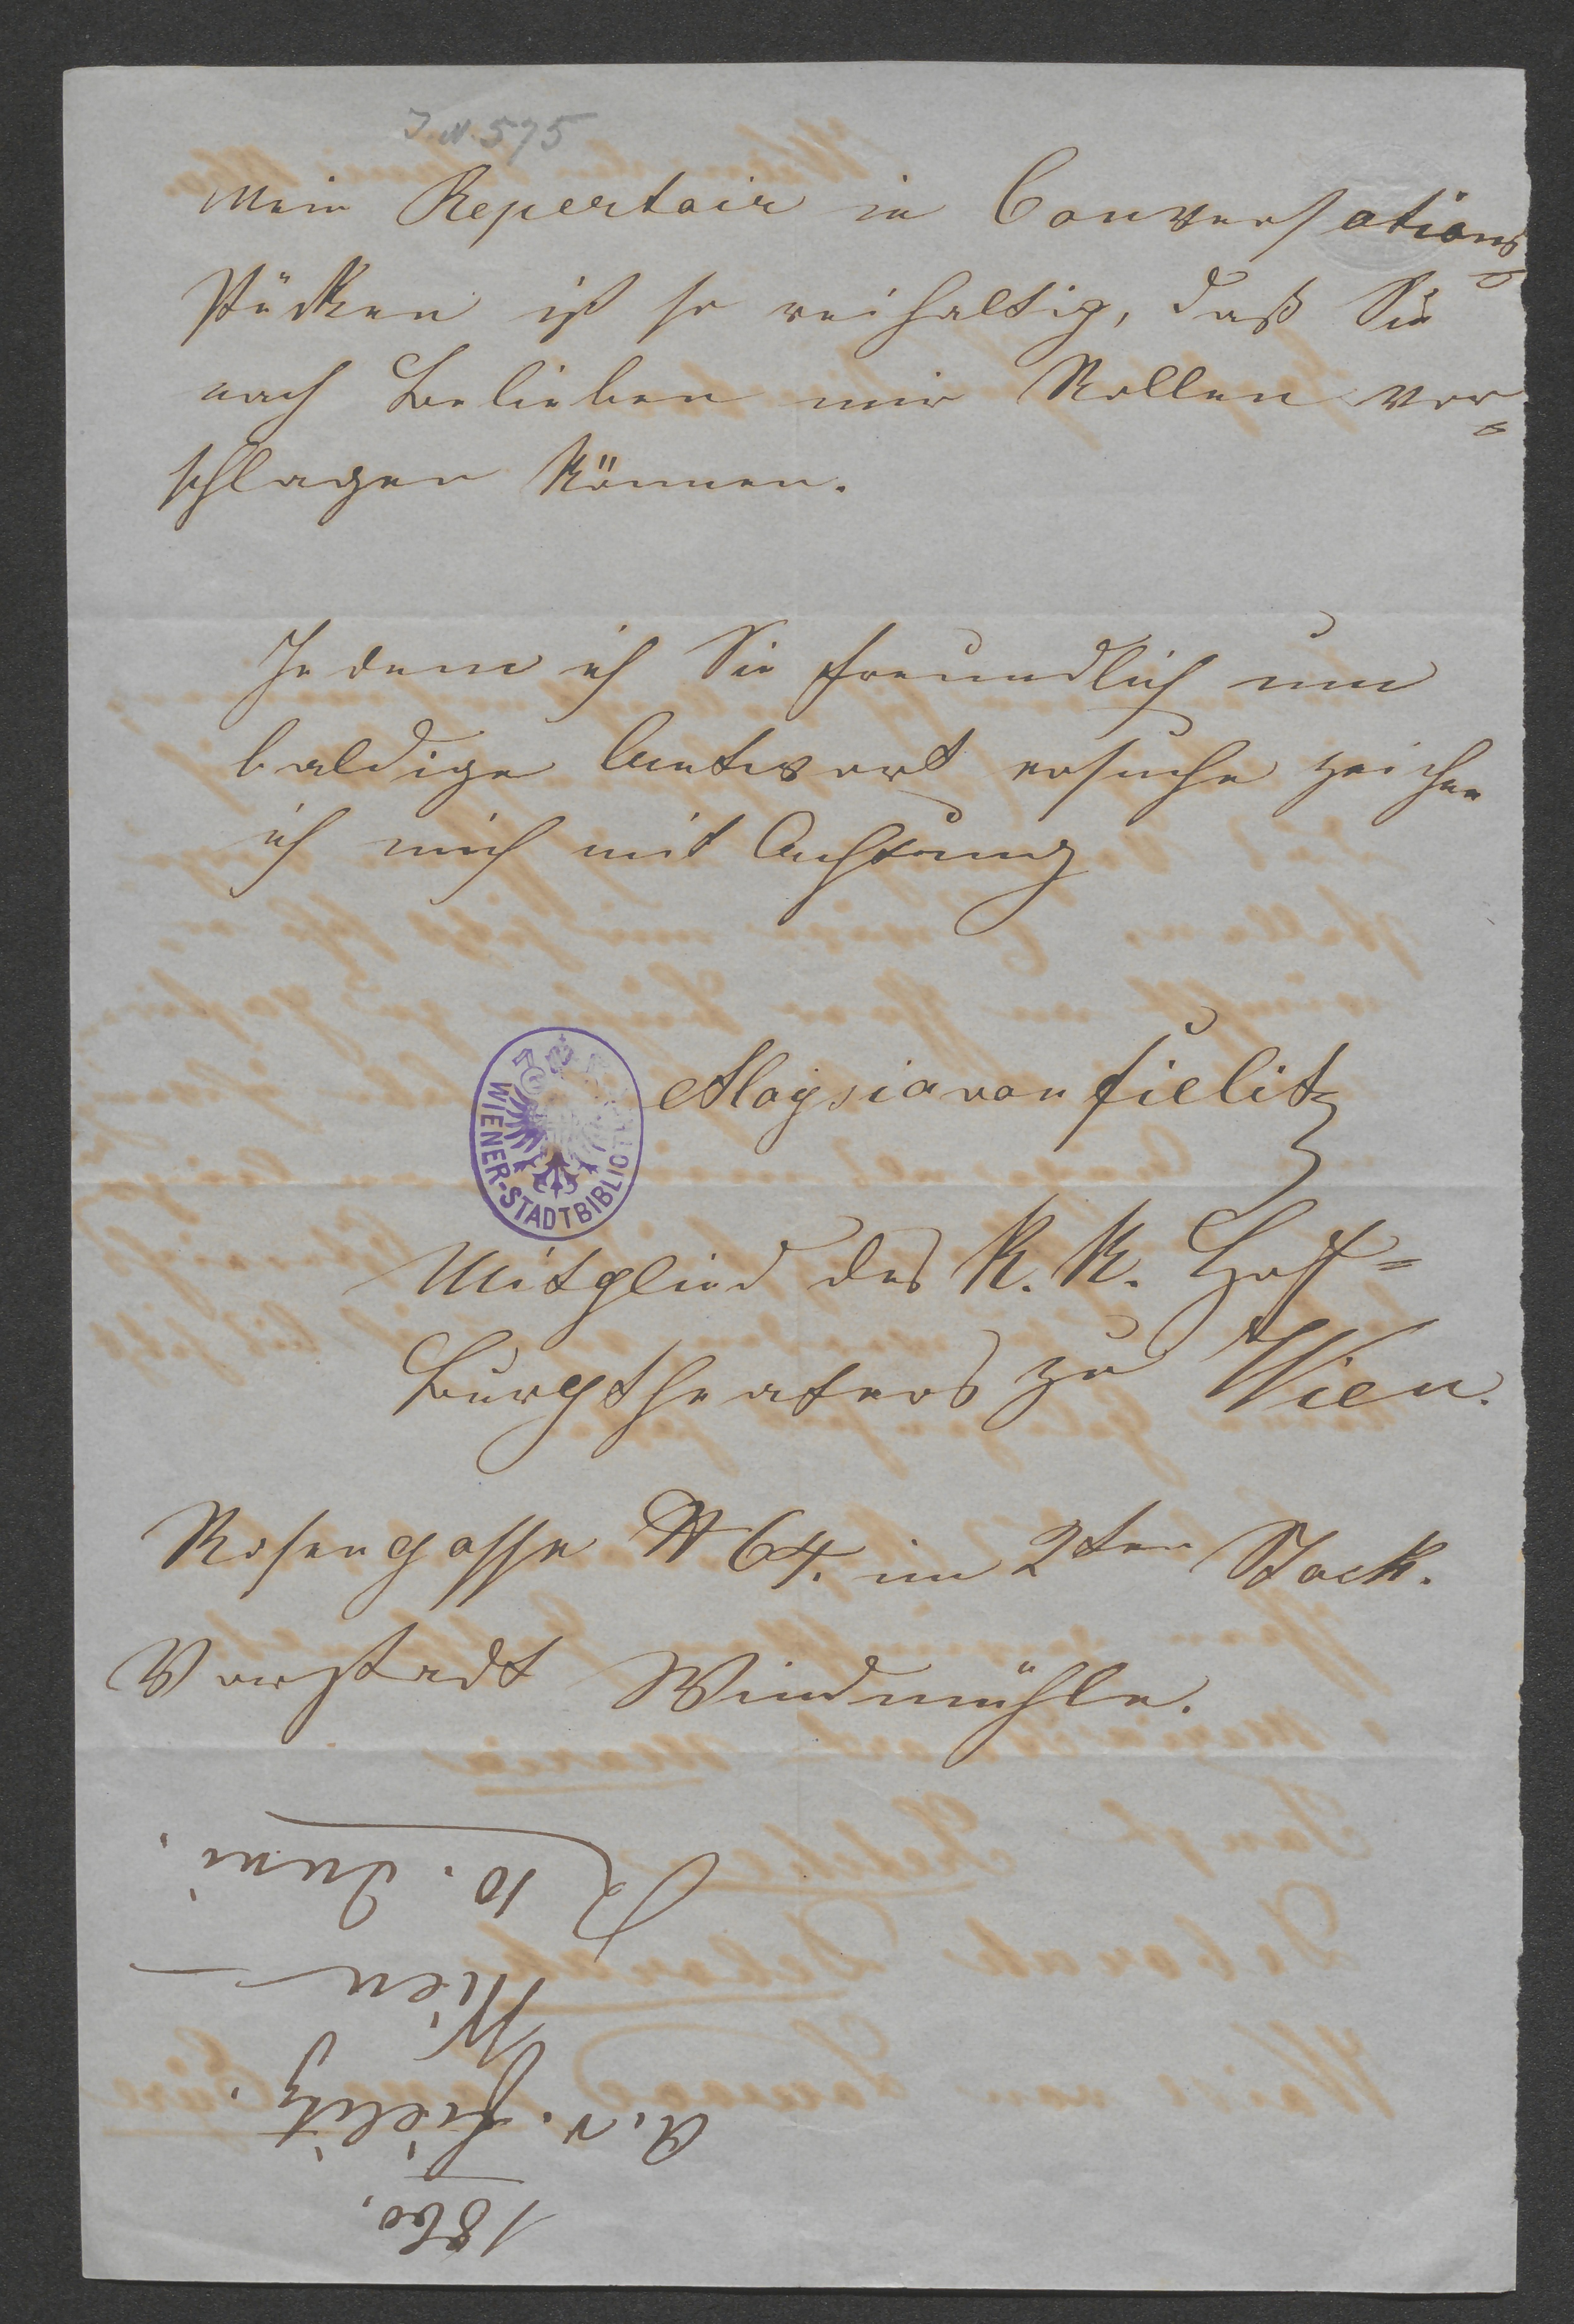 I.N. 575
Mein Repertoir in Conversations
stücken ist so reihaltig, daß Sie
nach Belieben mir Rollen vor=
schlagen können.
Indem ich Sie freundlich um
baldige Antwort ersuche zeichne
ich mich mit Achtung
Aloysia von Fielitz
WIENER-STADTBIBLIOTHEK
Mitglied des K. K. Hof=
Burgtheaters zu Wien.
Rosengasse № 64. im 2ten Stock.
Vorstadt Windmühle.
1860.
A. v. Fielitz.
Wien
R 10. Juni.